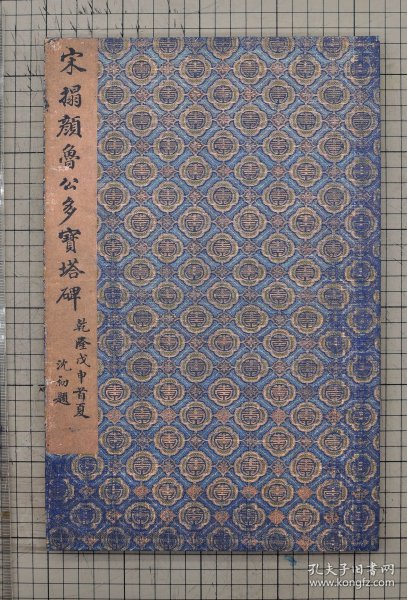 宋搨顏魯公多寶塔碑
乾隆戊申首夏
沈初題
孔夫子旧书网
www.kongfz.com